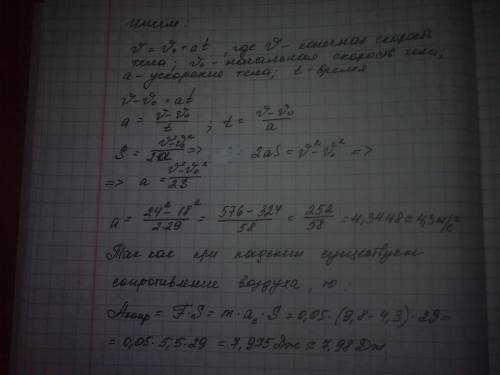 имеем:
v = v₀ + at, где v - конечная скорость
тела; v₀ - начальная скорость тела;
a - ускорение тела; t - время
v - v₀ = at
a = (v - v₀)/t ; t = (v - v₀)/a
S = (v² - v₀²)/2a => 2aS = v² - v₀² =>
=> a = (v² - v₀²)/2S
a = (24² - 18²)/(2·29) = (576 - 324)/58 = 252/58 = 4,3448 ≈ 4,3 м/с²
Так как при падении существует
сопротивление воздуха, то:
Aсопр = F·S = m·a꜀·S = 0,05·(9,8 - 4,3)·29 =
= 0,05·5,5·29 = 7,975 Дж ≈ 7,98 Дж